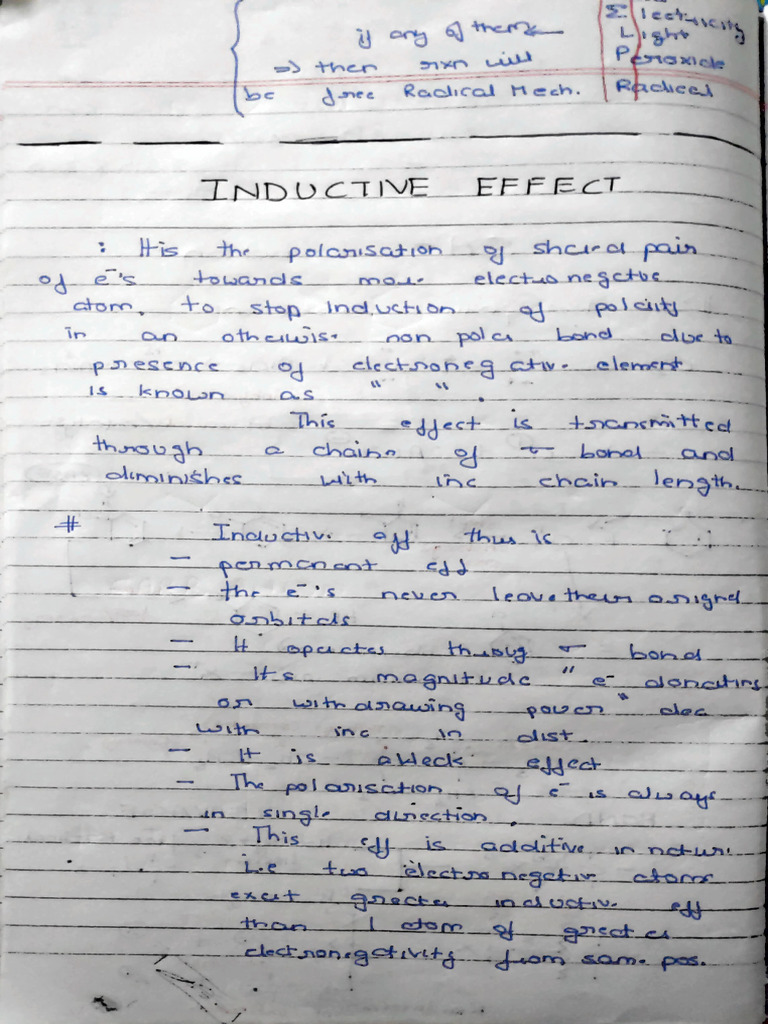 if any of them
Electricity
Light
⇒ then rxn will
Peroxide
be free Radical Mech.
Radical
INDUCTIVE EFFECT
: It is the polarisation of shared pair
of e⁻'s towards more electronegative
atom. to stop Induction of polarity
in an otherwise non polar bond due to
presence of electronegative element
is known as " ".
This effect is transmitted
through a chain of σ bond and
diminishes with inc chain length.
# Inductive eff thus is
– permanent eff
– the e⁻'s never leave their original
orbitals
– It operates throug σ bond
– Its magnitude " e⁻ donating
or withdrawing power " dec
with inc in dist.
– It is a weak effect
– The polarisation of e⁻ is always
in single direction.
– This eff is additive in nature
i.e two electronegative atoms
exert greater inductive eff
than 1 atom of greater
electronegativity from same pos.